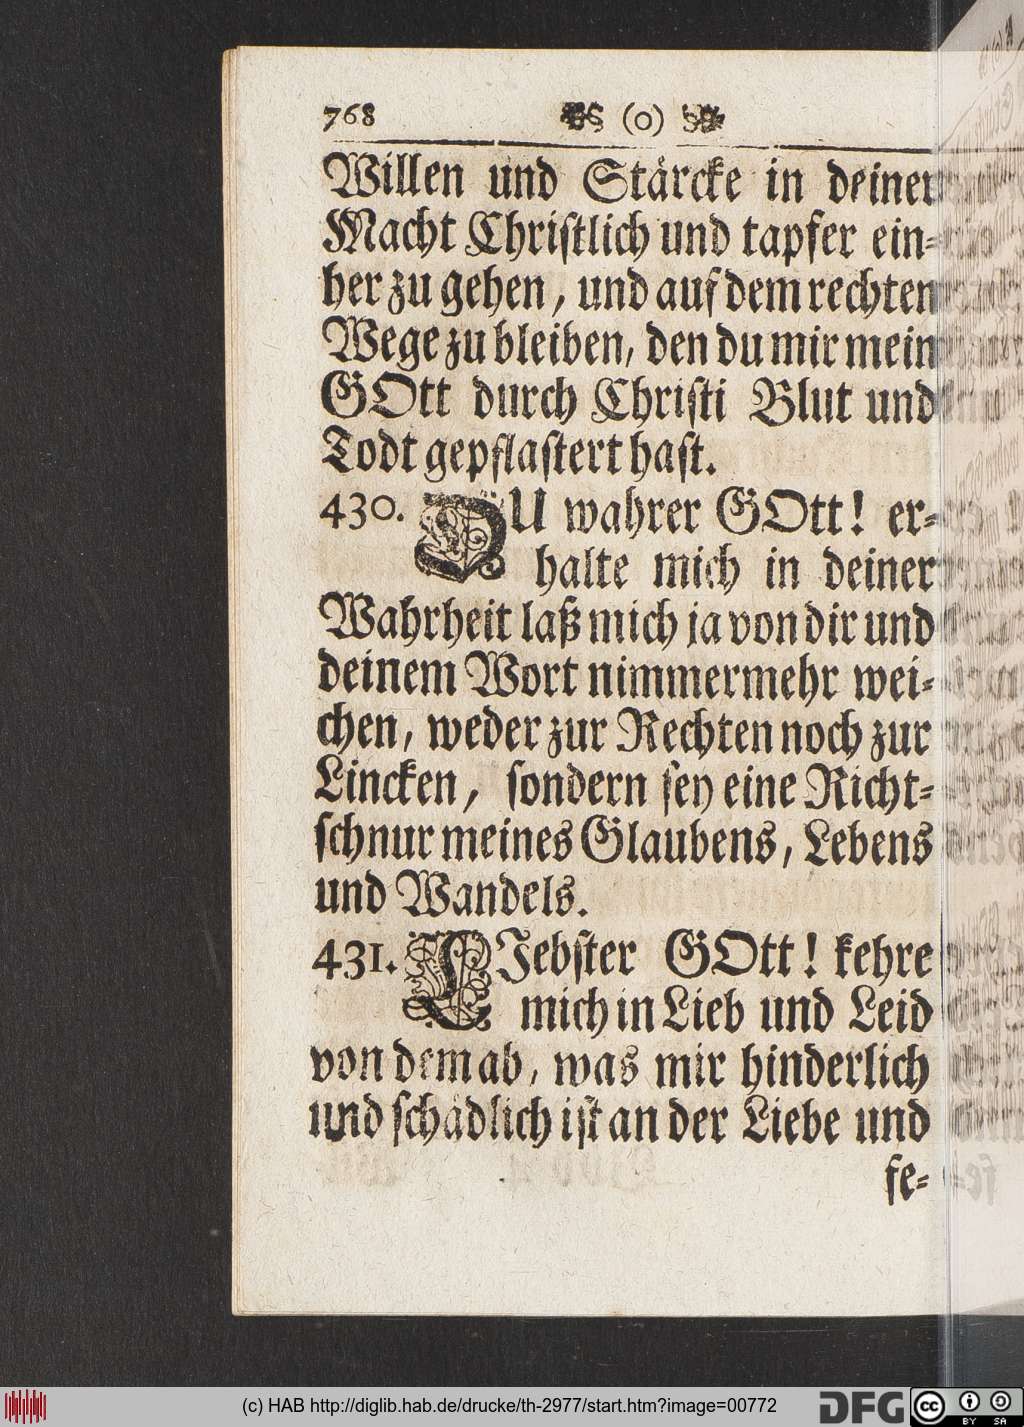 768 (0)
Willen und Stärcke in deiner
Macht Christlich und tapfer ein-
her zu gehen, und auf dem rechten
Wege zu bleiben, den du mir mein
GOtt durch Christi Blut und
Todt gepflastert hast.
430. DU wahrer GOtt! er-
halte mich in deiner
Wahrheit laß mich ja von dir und
deinem Wort nimmermehr wei-
chen, weder zur Rechten noch zur
Lincken, sondern sey eine Richt-
schnur meines Glaubens, Lebens
und Wandels.
431. LIebster GOtt! kehre
mich in Lieb und Leid
von dem ab, was mir hinderlich
und schädlich ist an der Liebe und
se-
(c) HAB http://diglib.hab.de/drucke/th-2977/start.htm?image=00772
DFG
cc BY SA